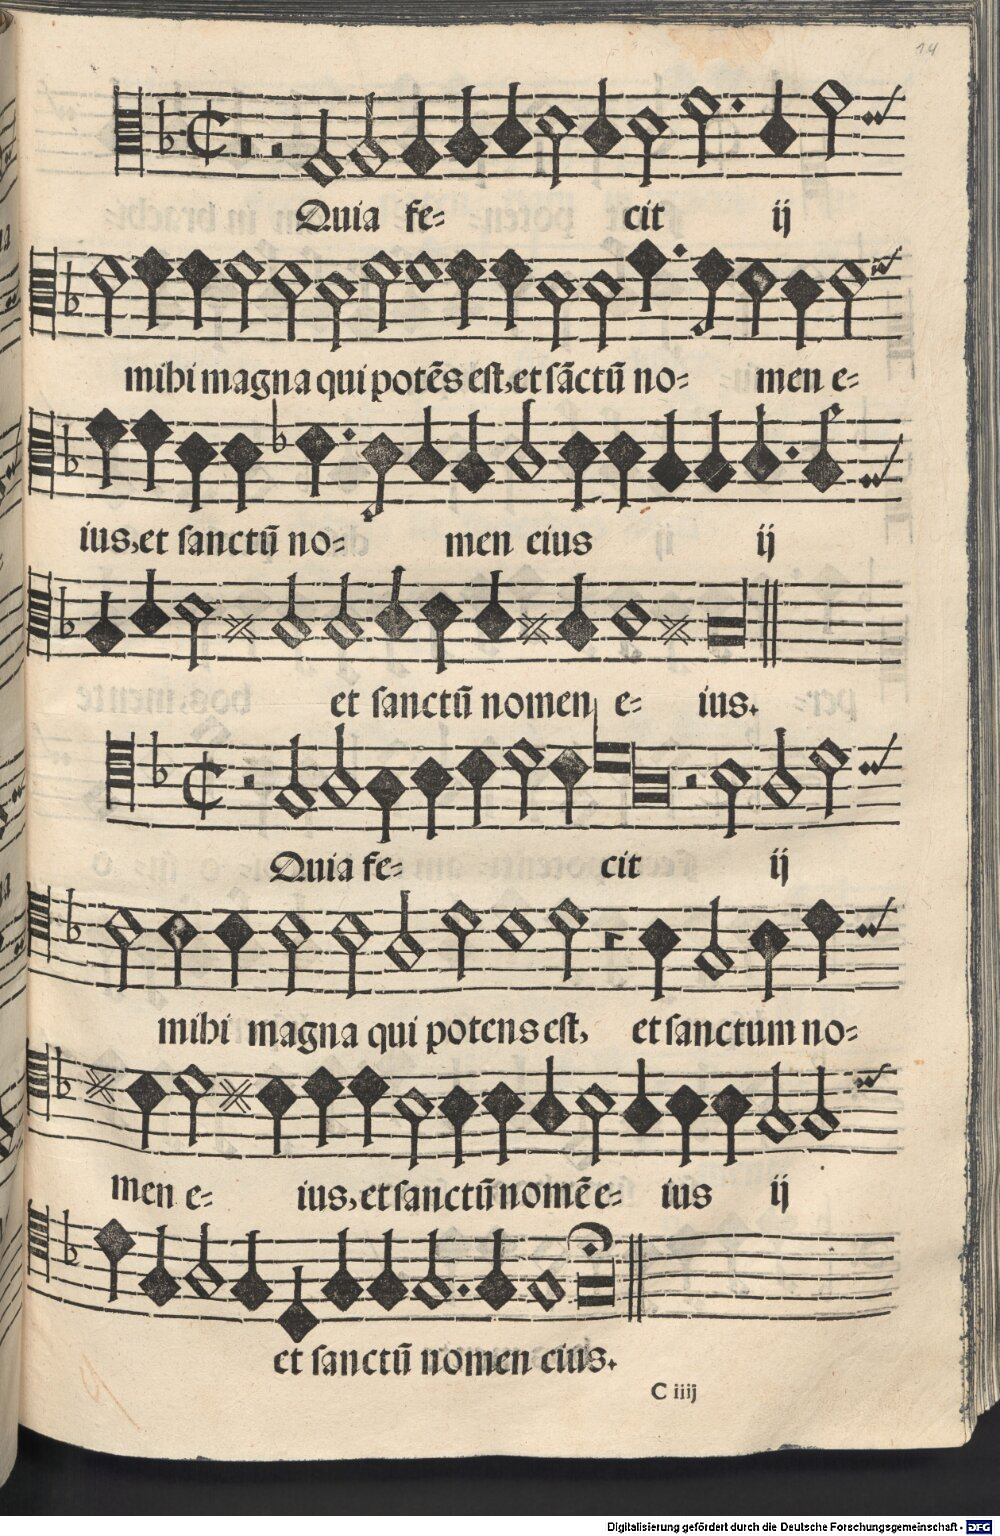 14
Quia fe= cit ij
mihi magna qui potēs est, et sāctū no= men e=
ius, et sanctū no= men eius ij
et sanctū nomen e= ius.
Quia fe= cit ij
mihi magna qui potens est, et sanctum no=
men e= ius, et sanctū nomē e= ius ij
et sanctū nomen eius.
C iiij
Digitalisierung gefördert durch die Deutsche Forschungsgemeinschaft - DFG